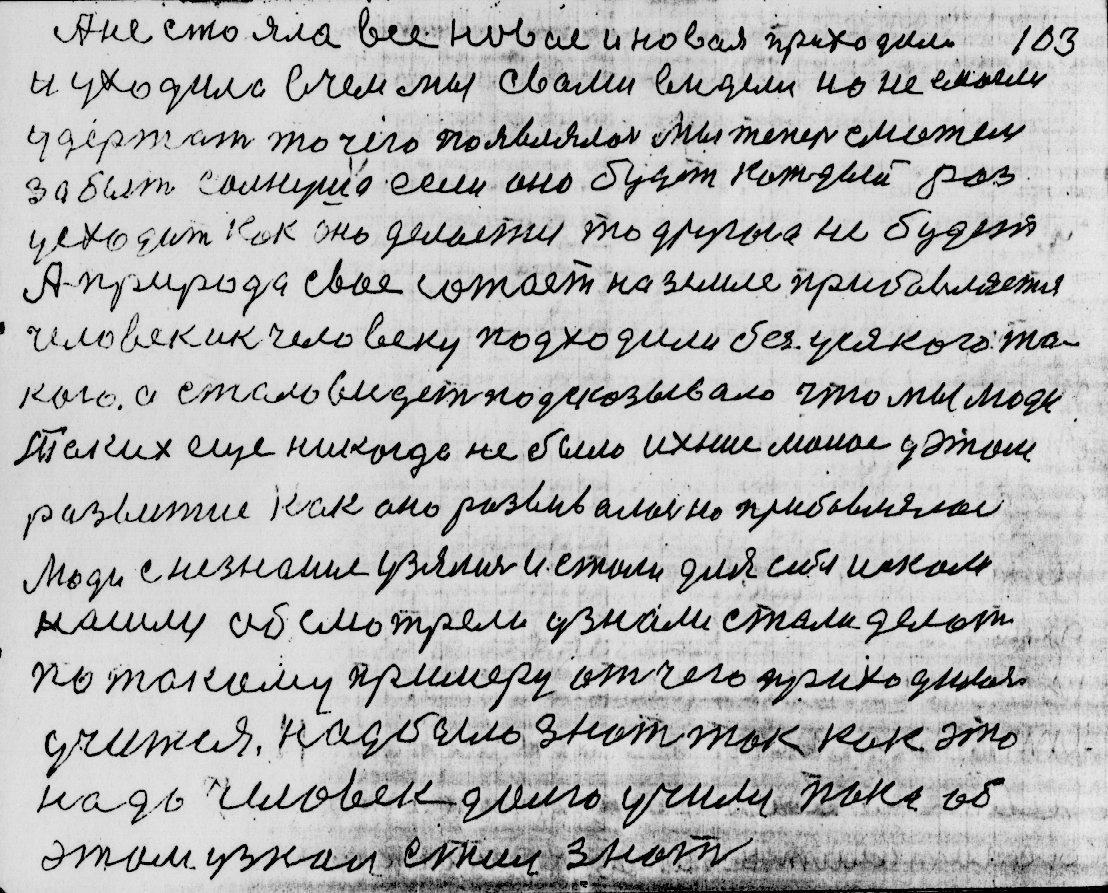 А не стояла все новое и новая приходила 103
и уходила в чем мы с вами видели но не смогли
удержат то чего появлялос Мы тепер сможем
забыт солнушко если оно будет каждый раз
уходит как оно делается то другога не будет
А природа свое на земле прибавляется
человек ик человеку подходили без усякого та-
кого. а стало видет подсказывало что мы люди
Таких еще никогда не было ихние малое у этом
развитие как оно развивалос но прибавлялос
Люди с незнание узялис и стали для себя
нашли обсмотрели узнали стали делат
по такому примеру от чего приходилос
учится. Надо было знат так как это
надо человек долго учили пока об
этом узнал стал знат